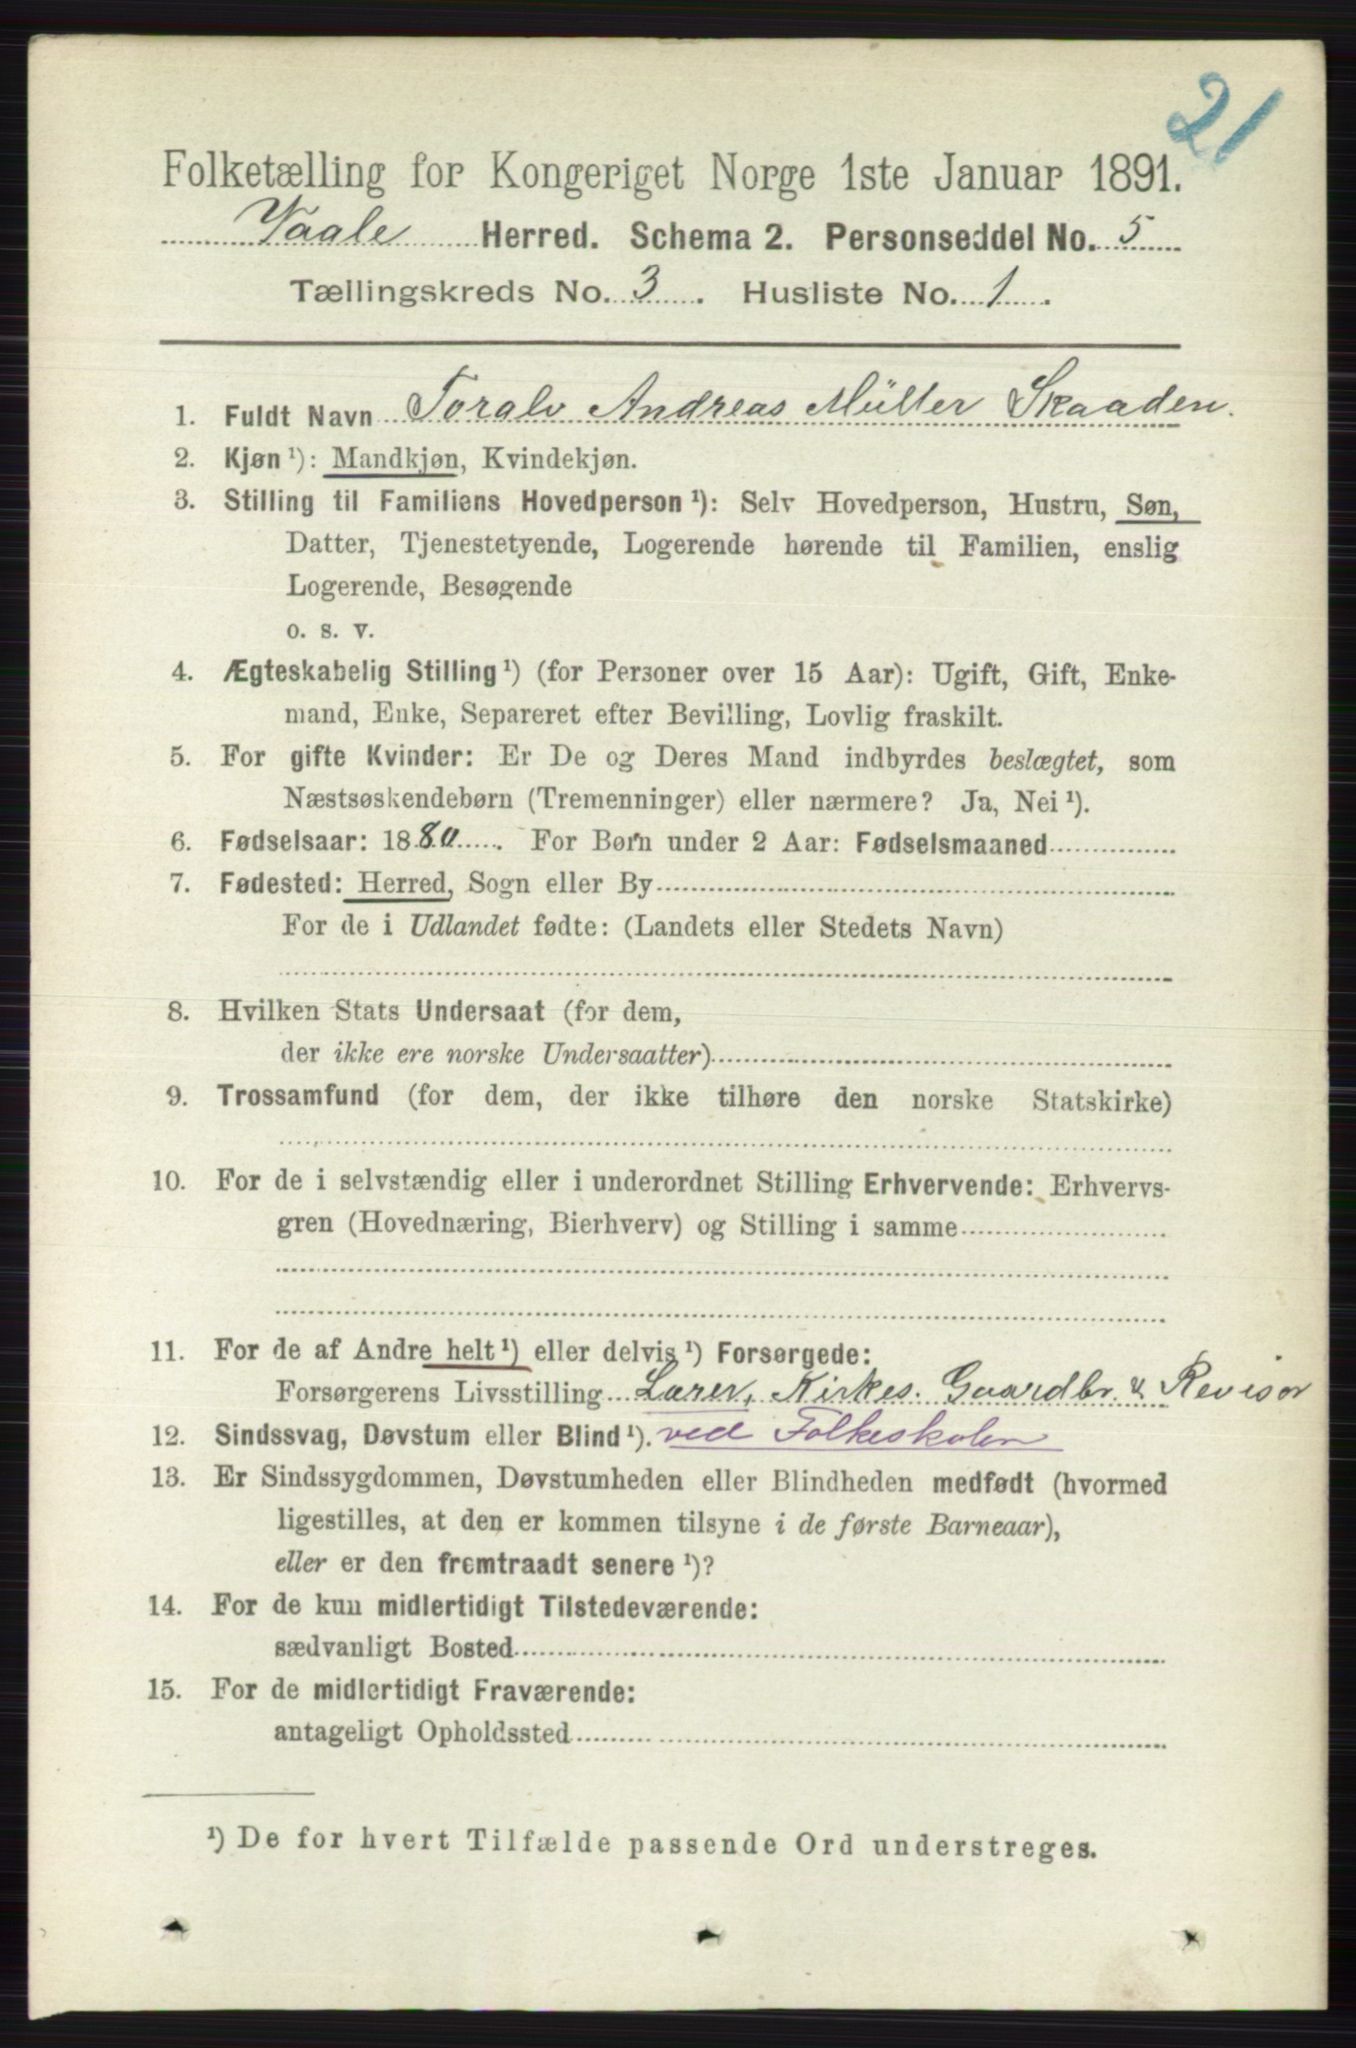 21
Folketælling for Kongeriget Norge 1ste Januar 1891.
Vaale Herred. Schema 2. Personseddel No. 5
Tællingskreds No. 3. Husliste No. 1.
1. Fuldt Navn Toralv Andreas Müller Skaaden.
2. Kjøn ¹): Mandkjøn, Kvindekjøn.
3. Stilling til Familiens Hovedperson ¹): Selv Hovedperson, Hustru, Søn,
Datter, Tjenestetyende, Logerende hørende til Familien, enslig
Logerende, Besøgende
o. s. v.
4. Ægteskabelig Stilling ¹) (for Personer over 15 Aar): Ugift, Gift, Enke-
mand, Enke, Separeret efter Bevilling, Lovlig fraskilt.
5. For gifte Kvinder: Er De og Deres Mand indbyrdes beslægtet, som
Næstsøskendebørn (Tremenninger) eller nærmere? Ja, Nei ¹).
6. Fødselsaar: 1880. For Børn under 2 Aar: Fødselsmaaned
7. Fødested: Herred, Sogn eller By
For de i Udlandet fødte: (Landets eller Stedets Navn)
8. Hvilken Stats Undersaat (for dem,
der ikke ere norske Undersaatter)
9. Trossamfund (for dem, der ikke tilhøre den norske Statskirke)
10. For de i selvstændig eller i underordnet Stilling Erhvervende: Erhvervs-
gren (Hovednæring, Bierhverv) og Stilling i samme
11. For de af Andre helt ¹) eller delvis ¹) Forsørgede:
Forsørgerens Livsstilling Lærer, Kirkes. Gaardbr. & Revisor
12. Sindssvag, Døvstum eller Blind ¹). ved Folkeskolen
13. Er Sindssygdommen, Døvstumheden eller Blindheden medfødt (hvormed
ligestilles, at den er kommen tilsyne i de første Barneaar),
eller er den fremtraadt senere ¹)?
14. For de kun midlertidigt Tilstedeværende:
sædvanligt Bosted
15. For de midlertidigt Fraværende:
antageligt Opholdssted
¹) De for hvert Tilfælde passende Ord understreges.